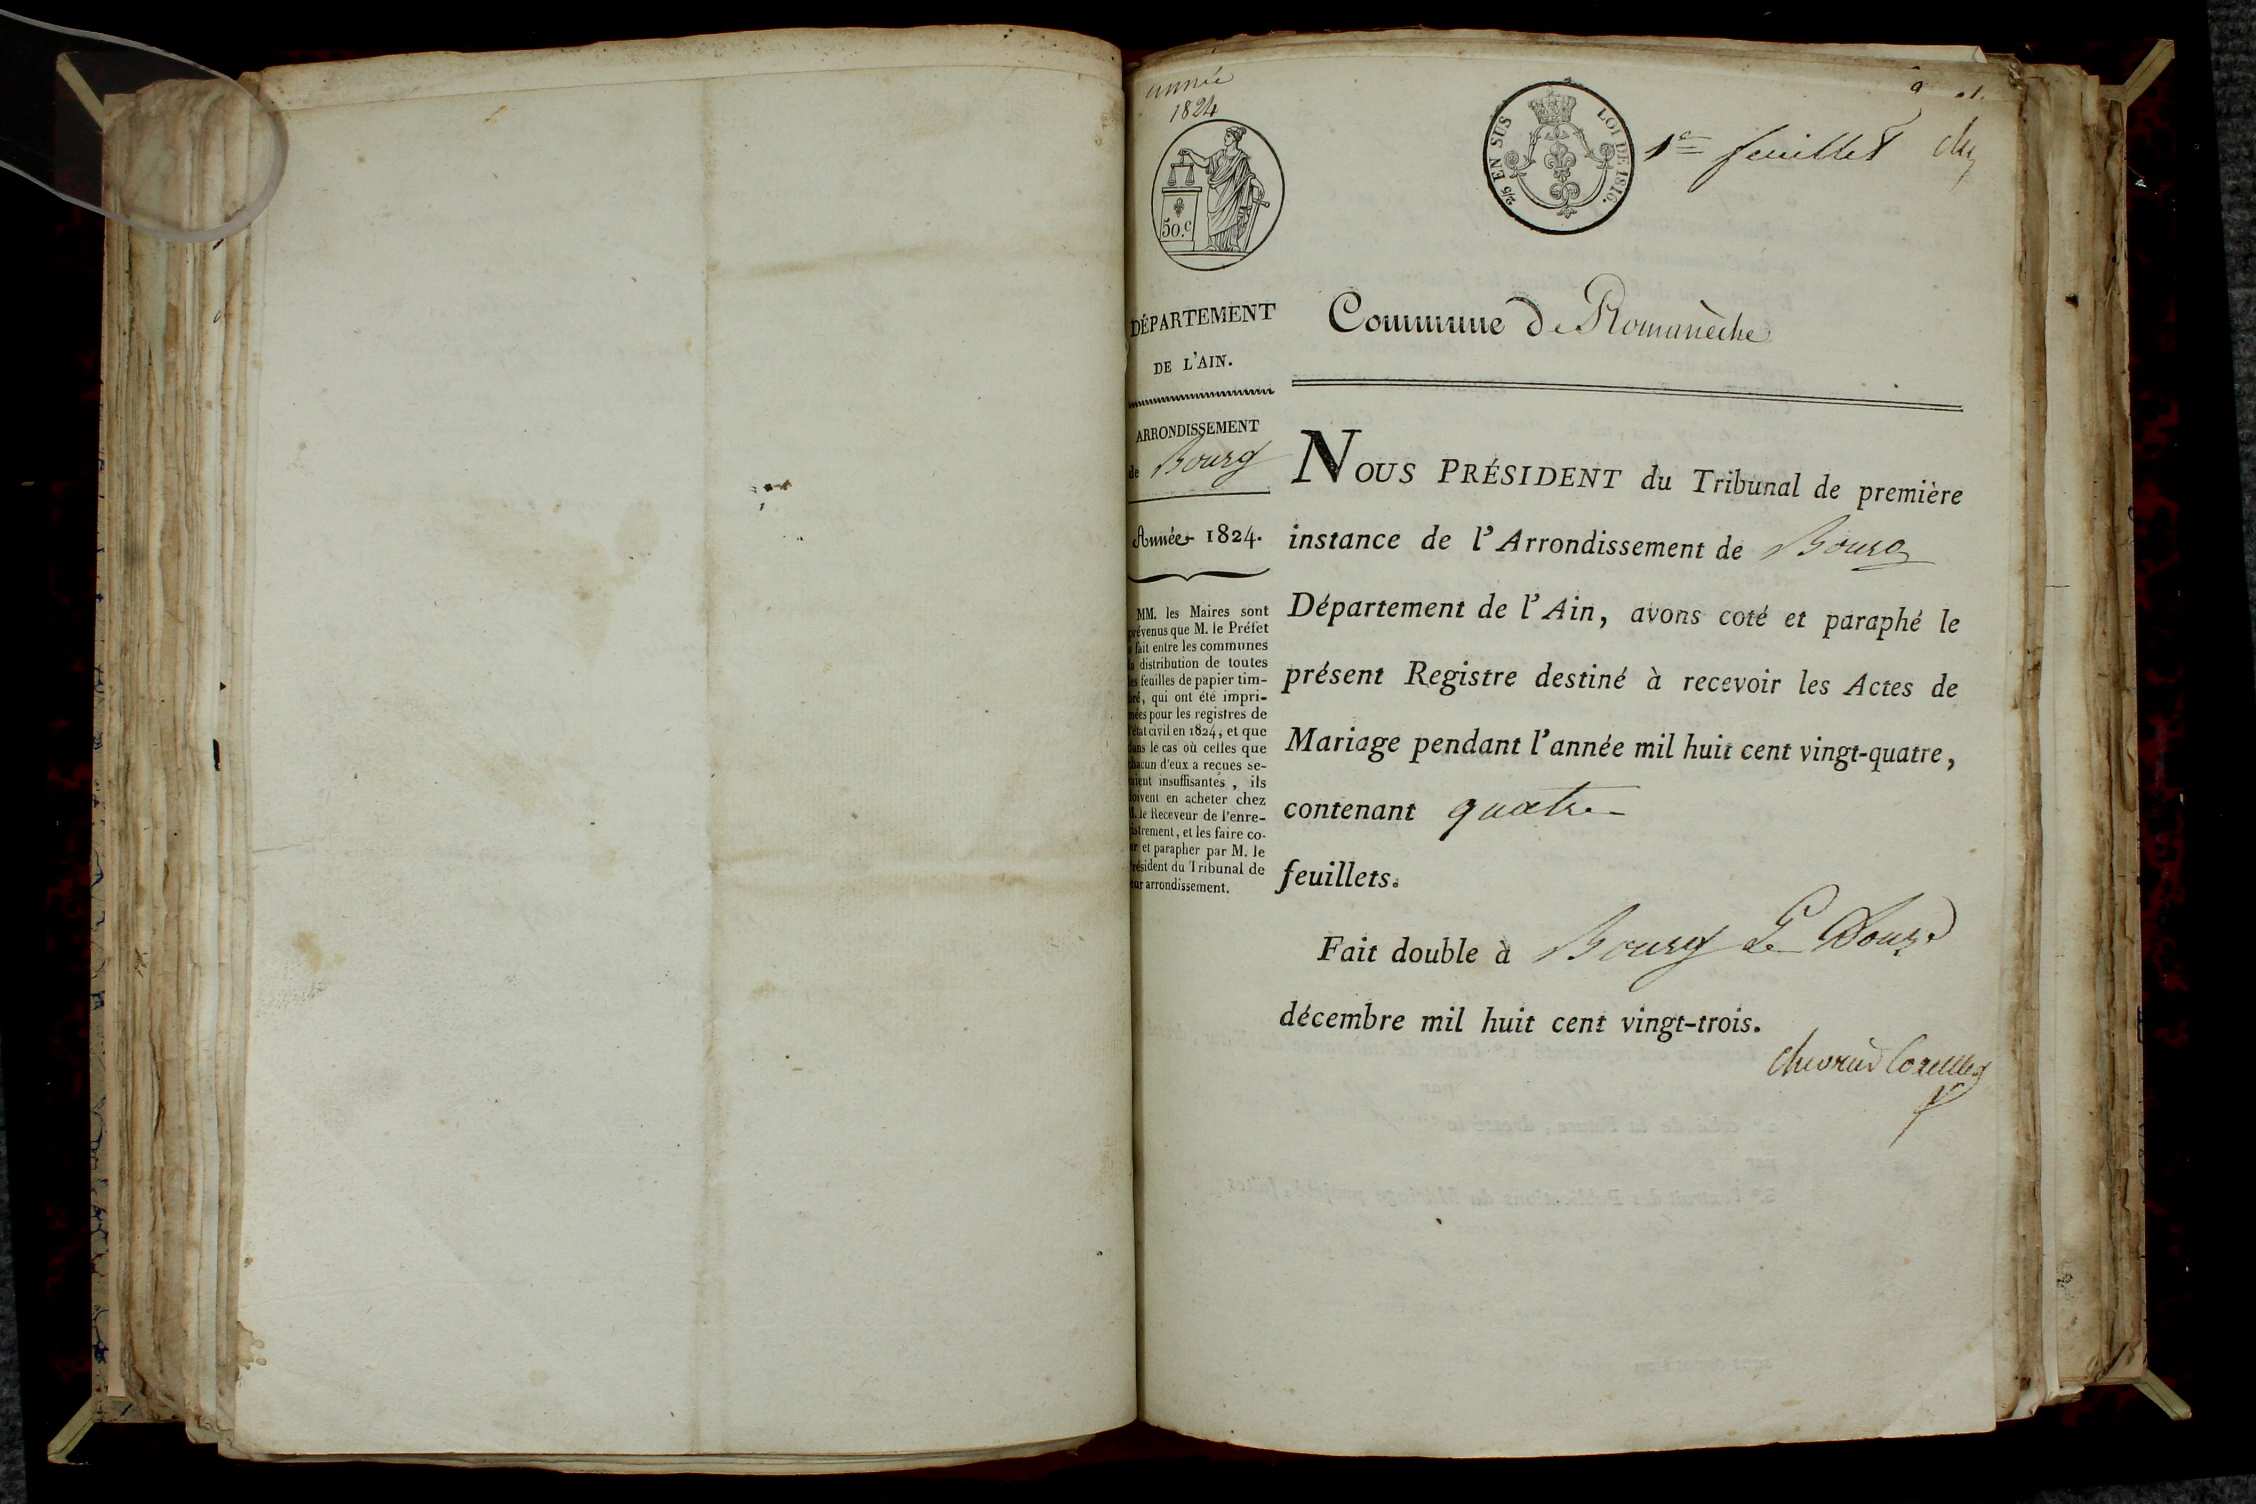 année
1824
50.c
2/5 EN SUS LOI DE 1816.
1er feuillet
DÉPARTEMENT
DE L'AIN.
ARRONDISSEMENT
de Bourg
Année 1824.
MM. les Maires sont
prévenus que M. le Préfet
a fait entre les communes
la distribution de toutes
les feuilles de papier tim-
bré, qui ont été impri-
mées pour les registres de
l'état civil en 1824, et que
dans le cas où celles que
chacun d'eux a reçues se-
raient insuffisantes, ils
doivent en acheter chez
M. le Receveur de l'enre-
gistrement, et les faire co-
ter et parapher par M. le
Président du Tribunal de
leur arrondissement.
Commune de Romanèche
NOUS PRÉSIDENT du Tribunal de première
instance de l'Arrondissement de Bourg
Département de l'Ain, avons coté et paraphé le
présent Registre destiné à recevoir les Actes de
Mariage pendant l'année mil huit cent vingt-quatre,
contenant quatre
feuillets.
Fait double à Bourg Le Douze
décembre mil huit cent vingt-trois.